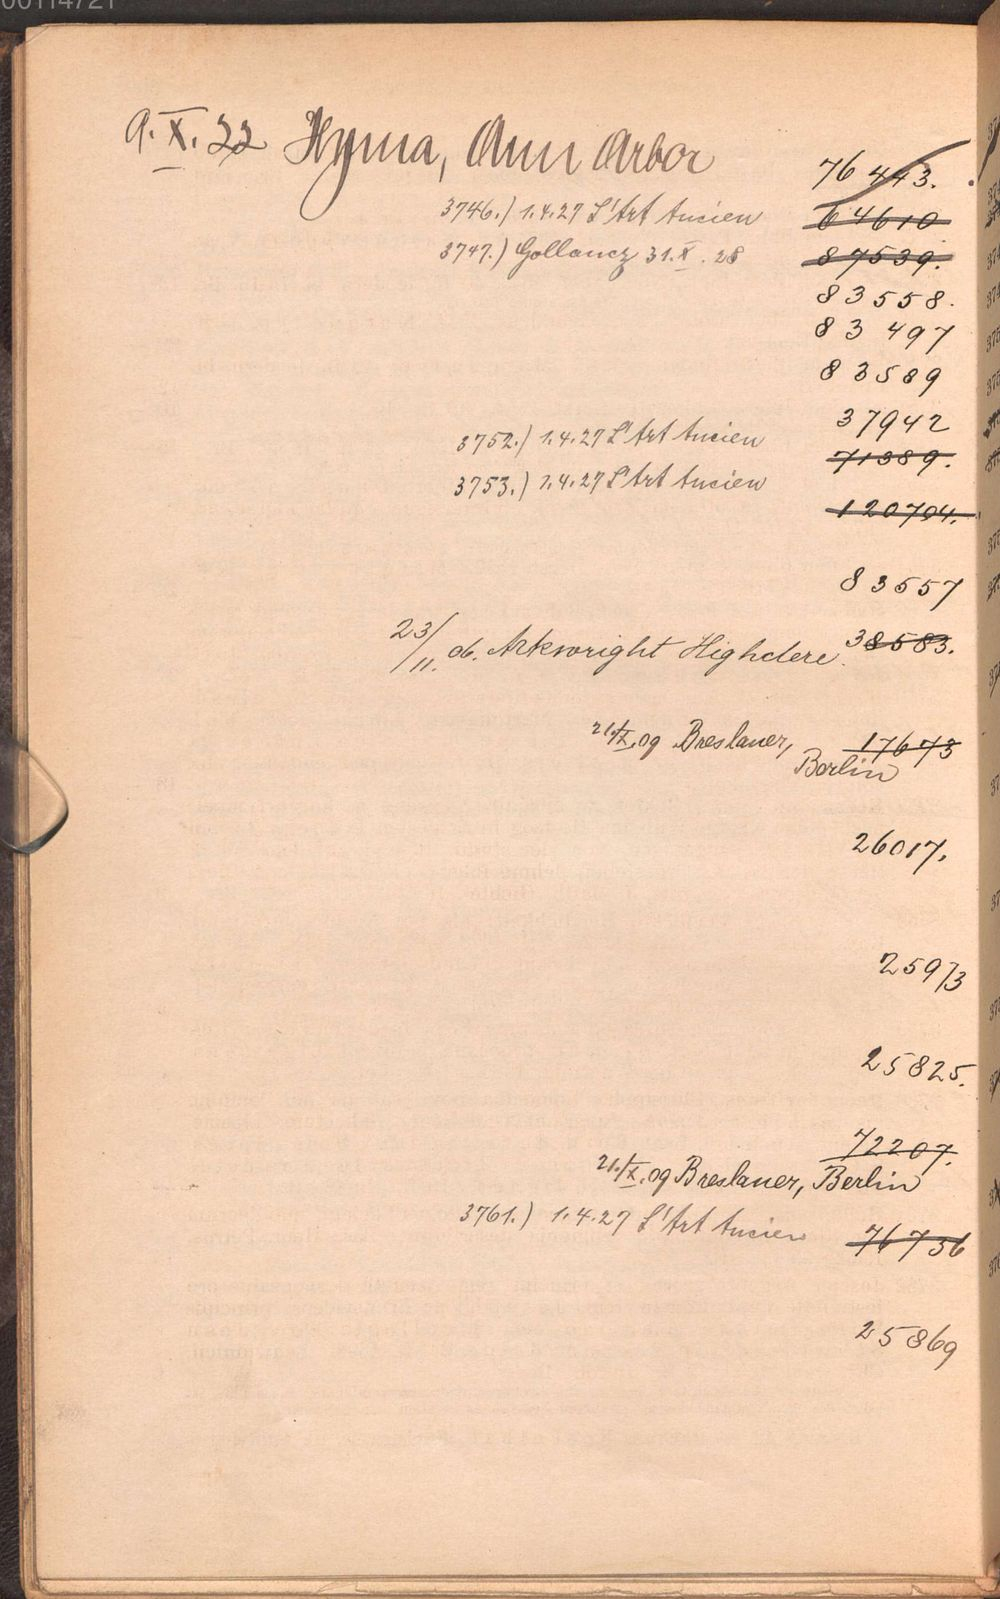 00114721
9.X.22 Hyma, Ann Arbor 76443.
3746.) 1.4.27 L'Art Ancien 64610
3747.) Gollancz 31.X.28 87539.
83558.
83497
83589
37942
3752.) 1.4.27 L'Art Ancien 71389.
3753.) 1.4.27 L'Art Ancien
120704.
83557
23/11. 06. Arkwright Highclere 38583.
21./X.09 Breslauer, 17673
Berlin
26017.
25973
25825.
72207.
21./X.09 Breslauer, Berlin
3761.) 1.4.27 L'Art Ancien 76736
25869